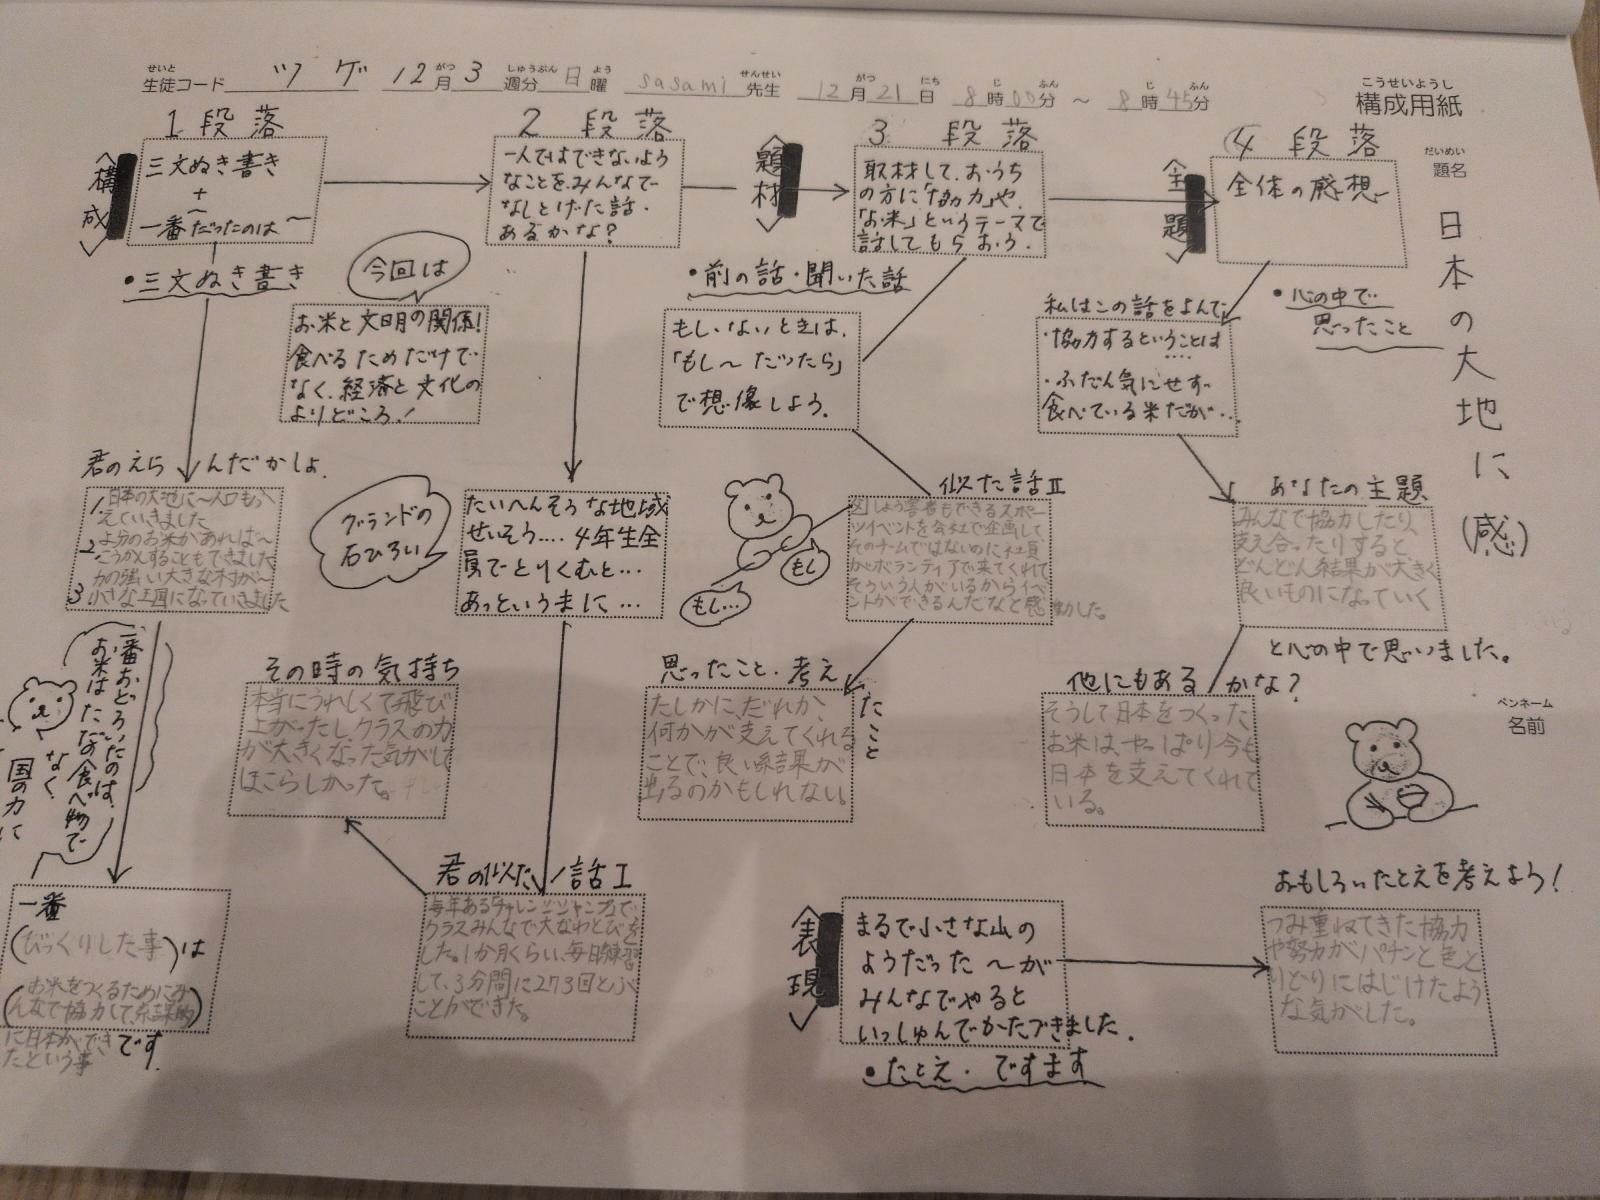 せいと
生徒コード ツゲ 12月3週分日曜 sasami先生 12月21日 8時00分 ～ 8時45分
こうせいようし
構成用紙
だいめい
題名
日本の大地に(感)
ペンネーム
名前
1段落
〈構成〉
三文ぬき書き
+
一番だったのは～
・三文ぬき書き
君のえらんだかしょ
1日本の大地に～人口もふ
えていきました
2よ分のお米があれば～
こうかんすることもできました
3力の強い大きな村が～
小さな王国になっていきました
一番おどろいたのは、
お米はただの食べ物で
なく
国の力に
一番
(びっくりした事)は
お米をつくるためにみ
んなで協力して、
に日本ができ
たという事
です.
2段落
一人ではできないよう
なことを、みんなで
なしとげた話.
あるかな?
今回は
お米と文明の関係!
食べるためだけで
なく、経済と文化の
よりどころ!
グランドの
石ひろい
たいへんそうな地域
せいそう….4年生全
員でとりくむと…
あっというまに…
その時の気持ち
本当にうれしくて飛び
上がったし、クラスの力
が大きくなった気がして
ほこらしかった。
君の似た話I
毎年あるチャレンジジャンプで
クラスみんなで大なわとびを
した。1か月くらい、毎日練習
して、3分間に273回とぶ
ことができた。
〈題材〉
3段落
取材して、おうち
の方に「協力」や、
「お米」というテーマで
話してもらおう.
・前の話・聞いた話
もし、ないときは、
「もし～だったら」
で想像しよう.
もし…
もし
似た話II
しょう害者もできるスポー
ツイベントを会社で企画して、
そのチームではないのに社員
がボランティアで来てくれて
そういう人がいるからイベ
ントができるんだなと感動した。
思ったこと・考えたこと
たしかに、だれか、
何かが支えてくれる
ことで、良い結果が
出るのかもしれない。
〈主題〉
4段落
全体の感想ー
・心の中で
思ったこと
私はこの話をよんで
・協力するということは
….
・ふだん気にせず
食べている米だが…
あなたの主題
みんなで協力したり、
支え合ったりすると、
どんどん結果が大きく
良いものになっていく
と心の中で思いました。
他にもあるかな?
そうして日本をつくった
お米は、やっぱり今も
日本を支えてくれて
いる。
〈表現〉
まるで小さな山の
ようだった～が
みんなでやると
いっしゅんでかたづきました.
・たとえ・ですます
おもしろいたとえを考えよう!
つみ重ねてきた協力
や努力がパチンと色と
りどりにはじけたよう
な気がした。